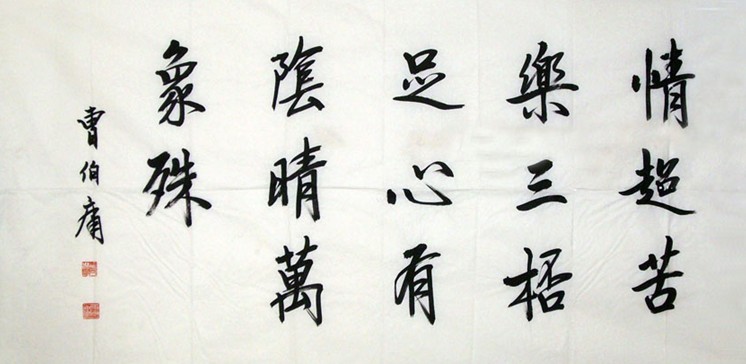 情超苦
樂三桮
足心有
陰晴萬
象殊
曹伯庸